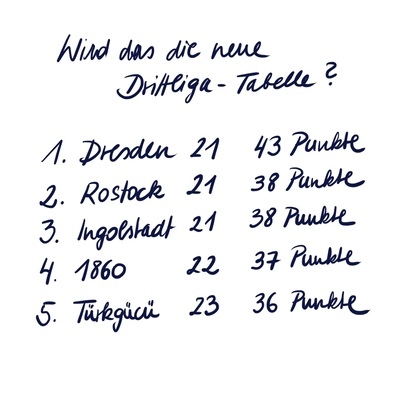 Wird das die neue
Drittliga-Tabelle?
1. Dresden 21 43 Punkte
2. Rostock 21 38 Punkte
3. Ingolstadt 21 38 Punkte
4. 1860 22 37 Punkte
5. Türkgücü 23 36 Punkte